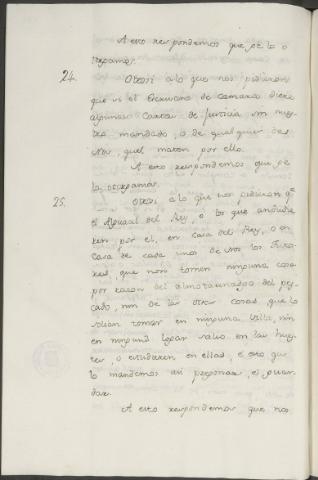 A esto respondemos que ge lo o
torgamos.
24. Otrosi a lo que nos pidieron
que si el Escrivano de Camara diere
algunas Cartas de Justicia sin nues
tro mandado, o de qualquier des
Nos, quel maten por ello.
A esto respondemos que ge
lo otorgamos.
25. Otrosi a lo que nos pidieron qe
el Alguacil del Rey, o los que andudie
ren por el, en casa del Rey, o en
Casa de cada unos de Nos los Tuto
res, que non tomen ninguna cosa
por razon del almotazenadgo del pes
cado, nin de las otras cosas, que lo
solian tomar en ninguna Villa, nin
en ningund logar salvo en las hues
tes, o estudieren en ellas, e esto que
lo mandemos asi pregonar, e guar
dar.
A esto respondemos que nos